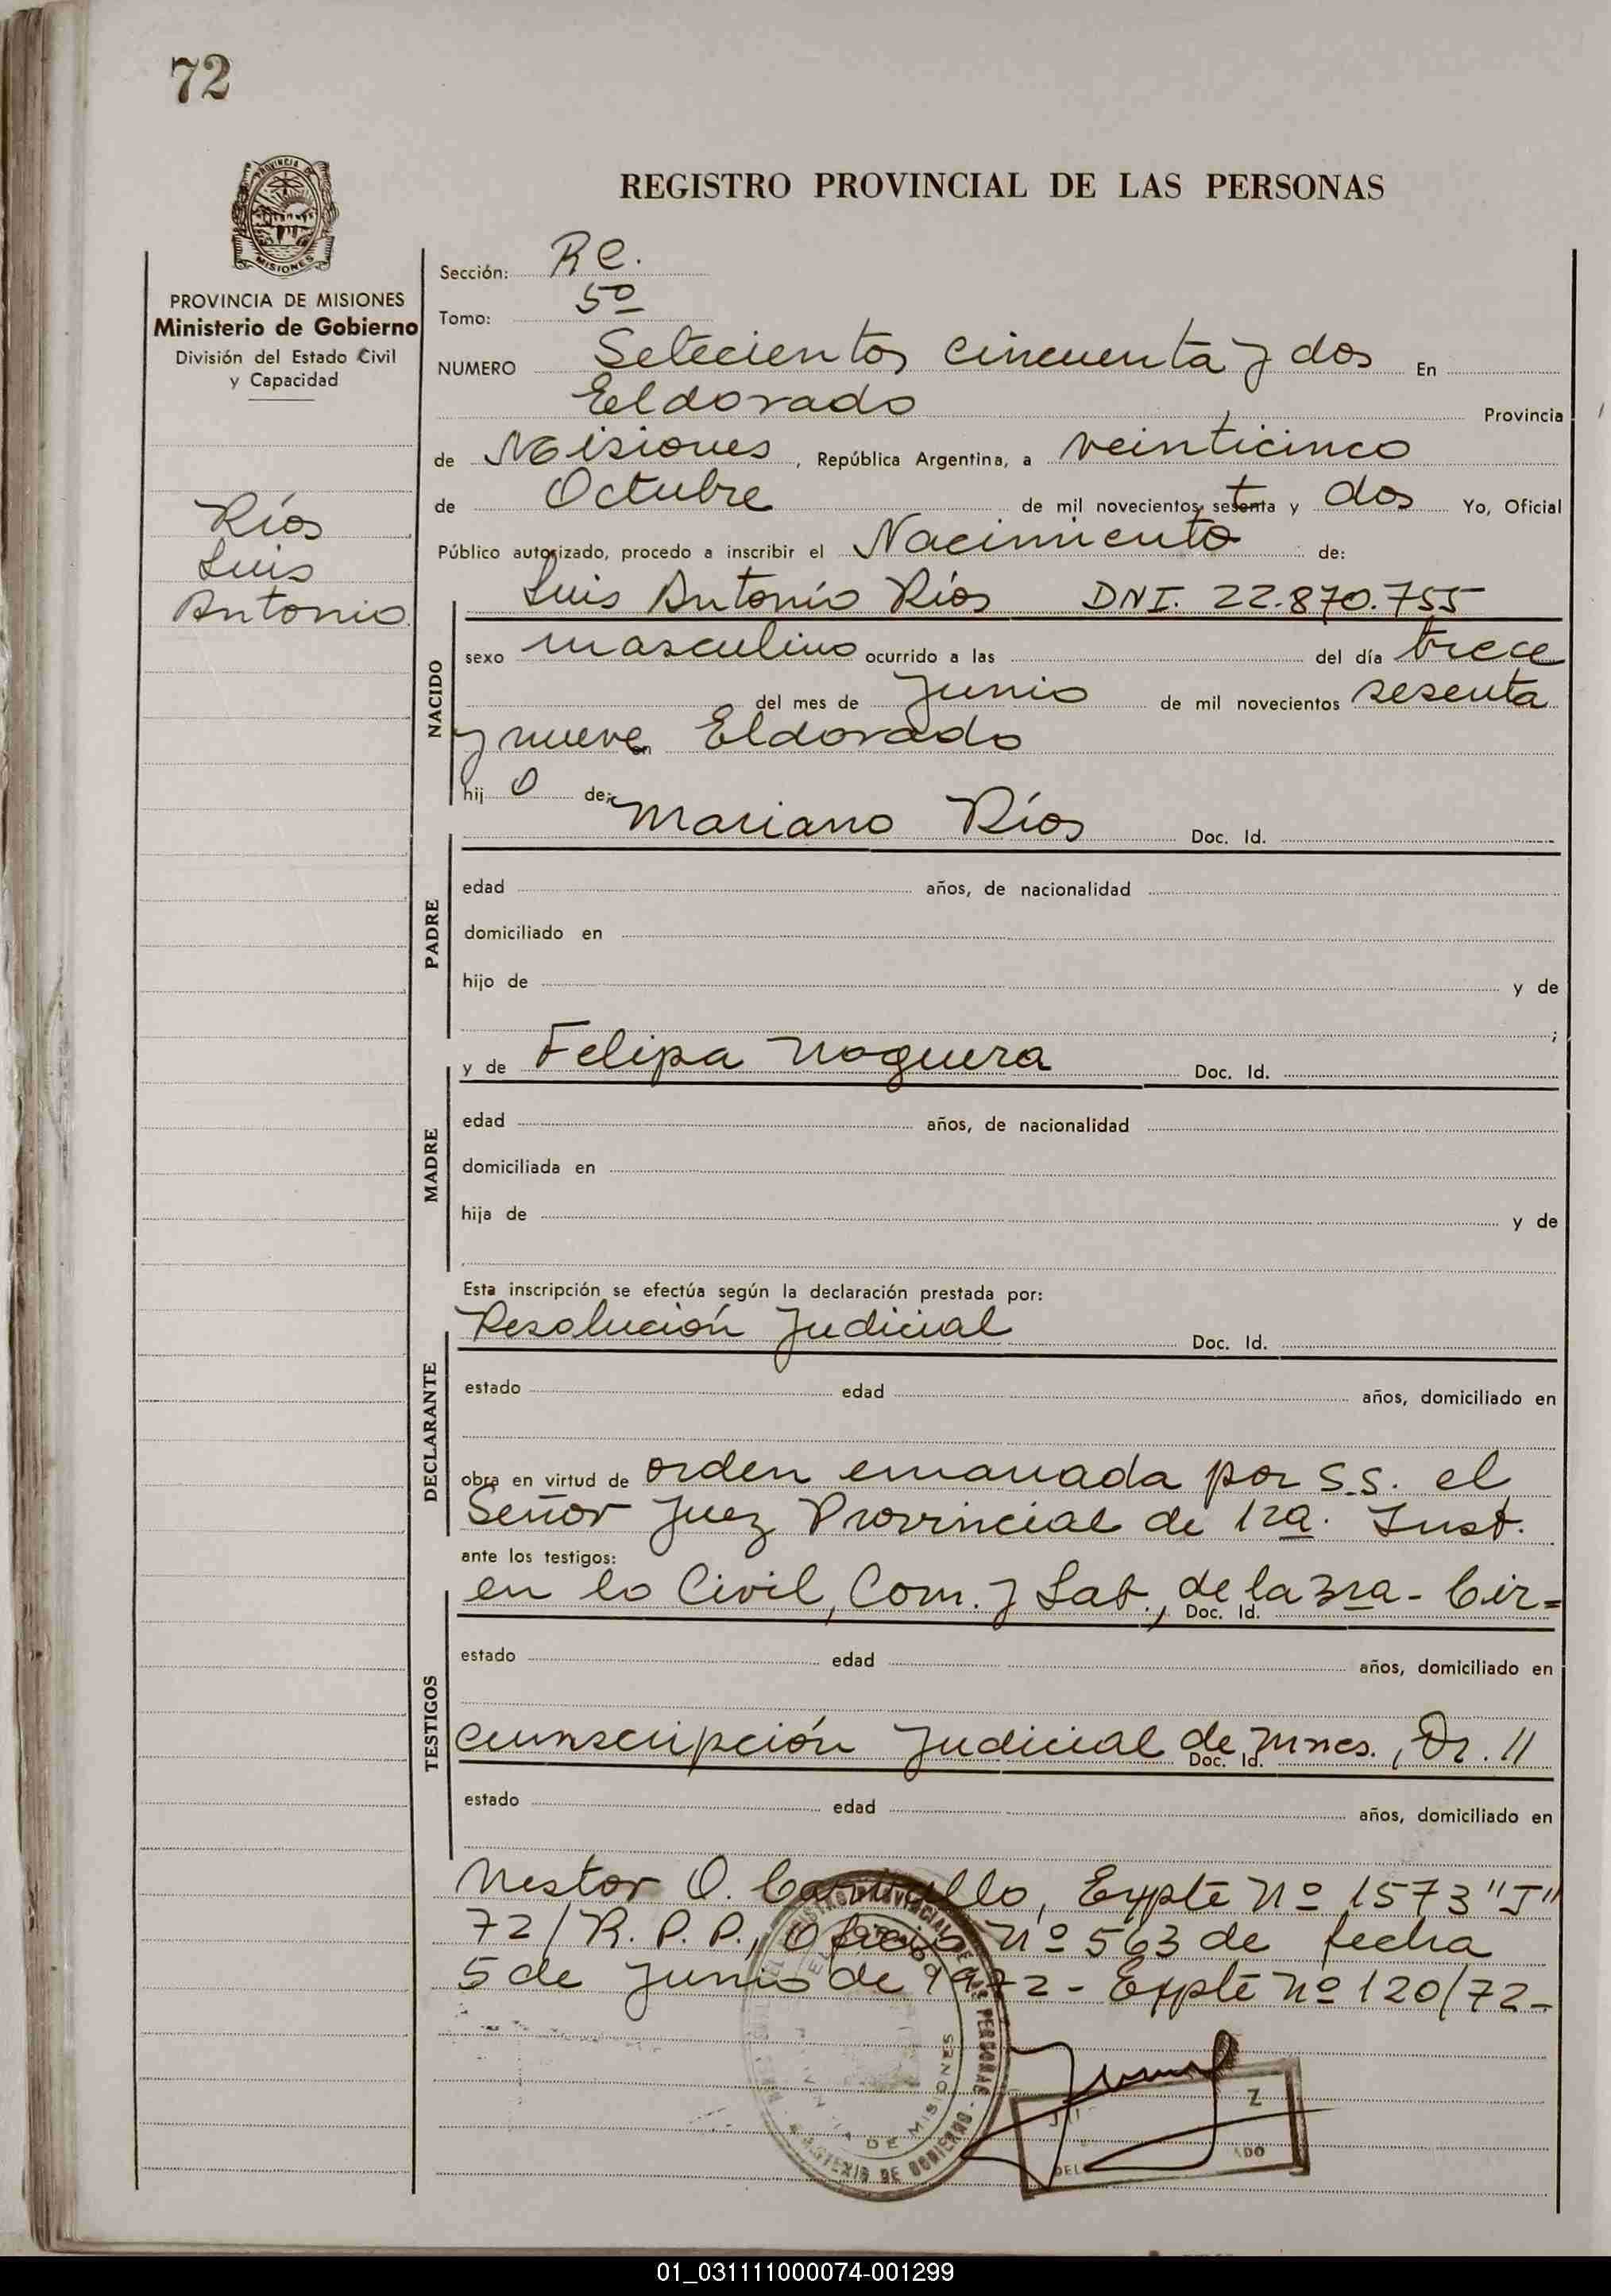 72
PROVINCIA DE
MISIONES
REGISTRO PROVINCIAL DE LAS PERSONAS
PROVINCIA DE MISIONES
Ministerio de Gobierno
División del Estado Civil
y Capacidad
Ríos
Luis
Antonio
Sección: RC.
Tomo: 5º
NUMERO Setecientos cincuenta y dos En
Eldorado Provincia
de Misiones, República Argentina, a veinticinco
de Octubre de mil novecientos setenta y dos Yo, Oficial
Público autorizado, procedo a inscribir el Nacimiento de:
Luis Antonio Ríos DNI. 22.870.755
NACIDO
sexo masculino ocurrido a las del día trece
del mes de Junio de mil novecientos sesenta
y nueve en Eldorado
hijo de:
Mariano Ríos Doc. Id.
PADRE
edad años, de nacionalidad
domiciliado en
hijo de y de
;
y de Felipa Noguera Doc. Id.
MADRE
edad años, de nacionalidad
domiciliada en
hija de y de
Esta inscripción se efectúa según la declaración prestada por:
Resolución Judicial Doc. Id.
DECLARANTE
estado edad años, domiciliado en
obra en virtud de orden emanada por S.S. el
Señor Juez Provincial de 1ra. Inst.
ante los testigos:
en lo Civil, Com. y Lab., de la 3ra- Cir=
Doc. Id.
TESTIGOS
estado edad años, domiciliado en
cunscripción Judicial de Mnes., Dr. //
Doc. Id.
estado edad años, domiciliado en
Nestor O. , Expte Nº 1573 "J"
72/R.P.P., Oficio Nº 563 de fecha
5 de Junio de 1972- Expte Nº 120/72-
REGISTRO PROVINCIAL DE LAS PERSONAS
DE MISIONES
MINISTERIO DE GOBIERNO
01_031111000074-001299